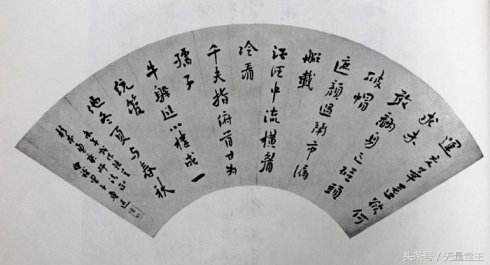 運交華蓋欲何
求未
敢翻身已碰頭
破帽
遮顏過鬧市漏
船載
酒泛中流橫眉
冷看
千夫指俯首甘為
孺子
牛躲進小樓成一
統管
他冬夏與春秋
魯迅
头条号 / 无量堂主